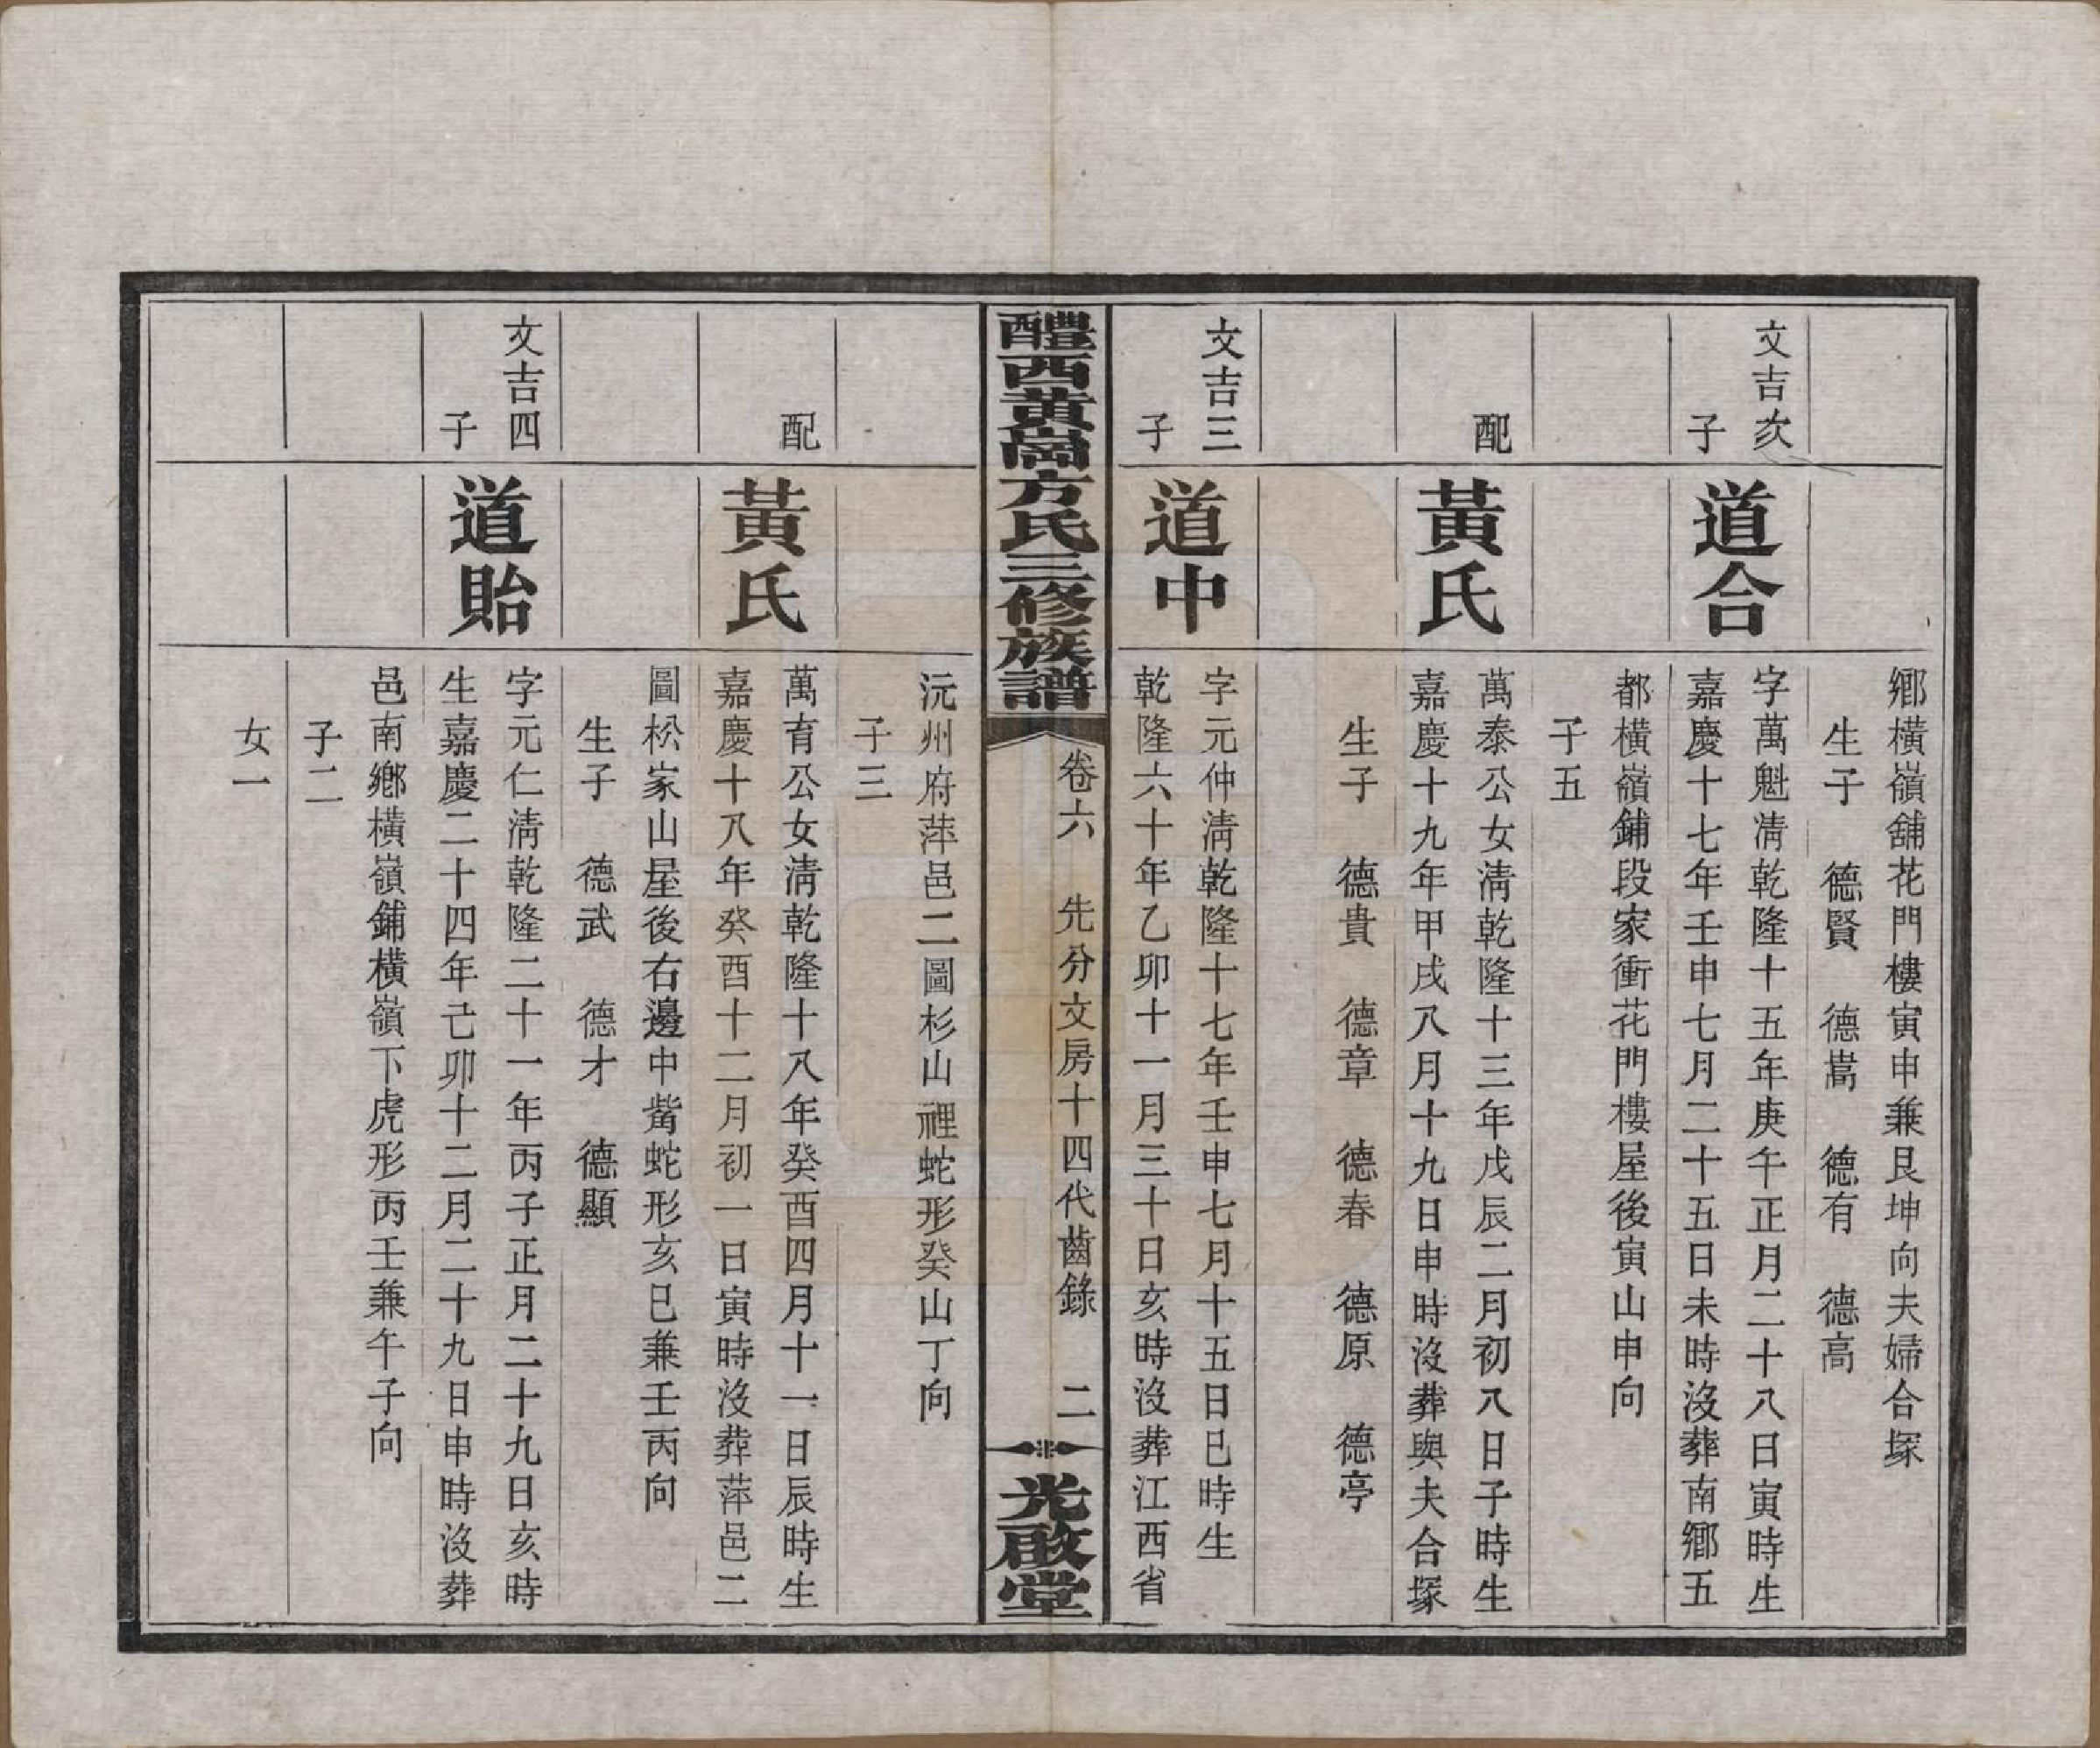 鄉橫嶺舖花門樓寅申兼艮坤向夫婦合塚
生子　德賢　德嵩　德有　德高
文吉次子
道合
字萬魁清乾隆十五年庚午正月二十八日寅時生
嘉慶十七年壬申七月二十五日未時沒葬南鄉五
都橫嶺鋪段家衝花門樓屋後寅山申向
子五
配
黃氏
萬泰公女清乾隆十三年戊辰二月初八日子時生
嘉慶十九年甲戌八月十九日申時沒葬與夫合塚
生子　德貴　德章　德春　德原　德亭
文吉三子
道中
字元仲清乾隆十七年壬申七月十五日巳時生
乾隆六十年乙卯十一月三十日亥時沒葬江西省
醴西黃崗方氏三修族譜
卷六　先分文房十四代齒錄　二
光啟堂
沅州府萍邑二圖杉山裡蛇形癸山丁向
子三
配
黃氏
萬育公女清乾隆十八年癸酉四月十一日辰時生
嘉慶十八年癸酉十二月初一日寅時沒葬萍邑二
圖松家山屋後右邊中嘴蛇形亥巳兼壬丙向
生子　德武　德才　德顯
文吉四子
道貽
字元仁清乾隆二十一年丙子正月二十九日亥時
生嘉慶二十四年己卯十二月二十九日申時沒葬
邑南鄉橫嶺鋪橫嶺下虎形丙壬兼午子向
子二
女一